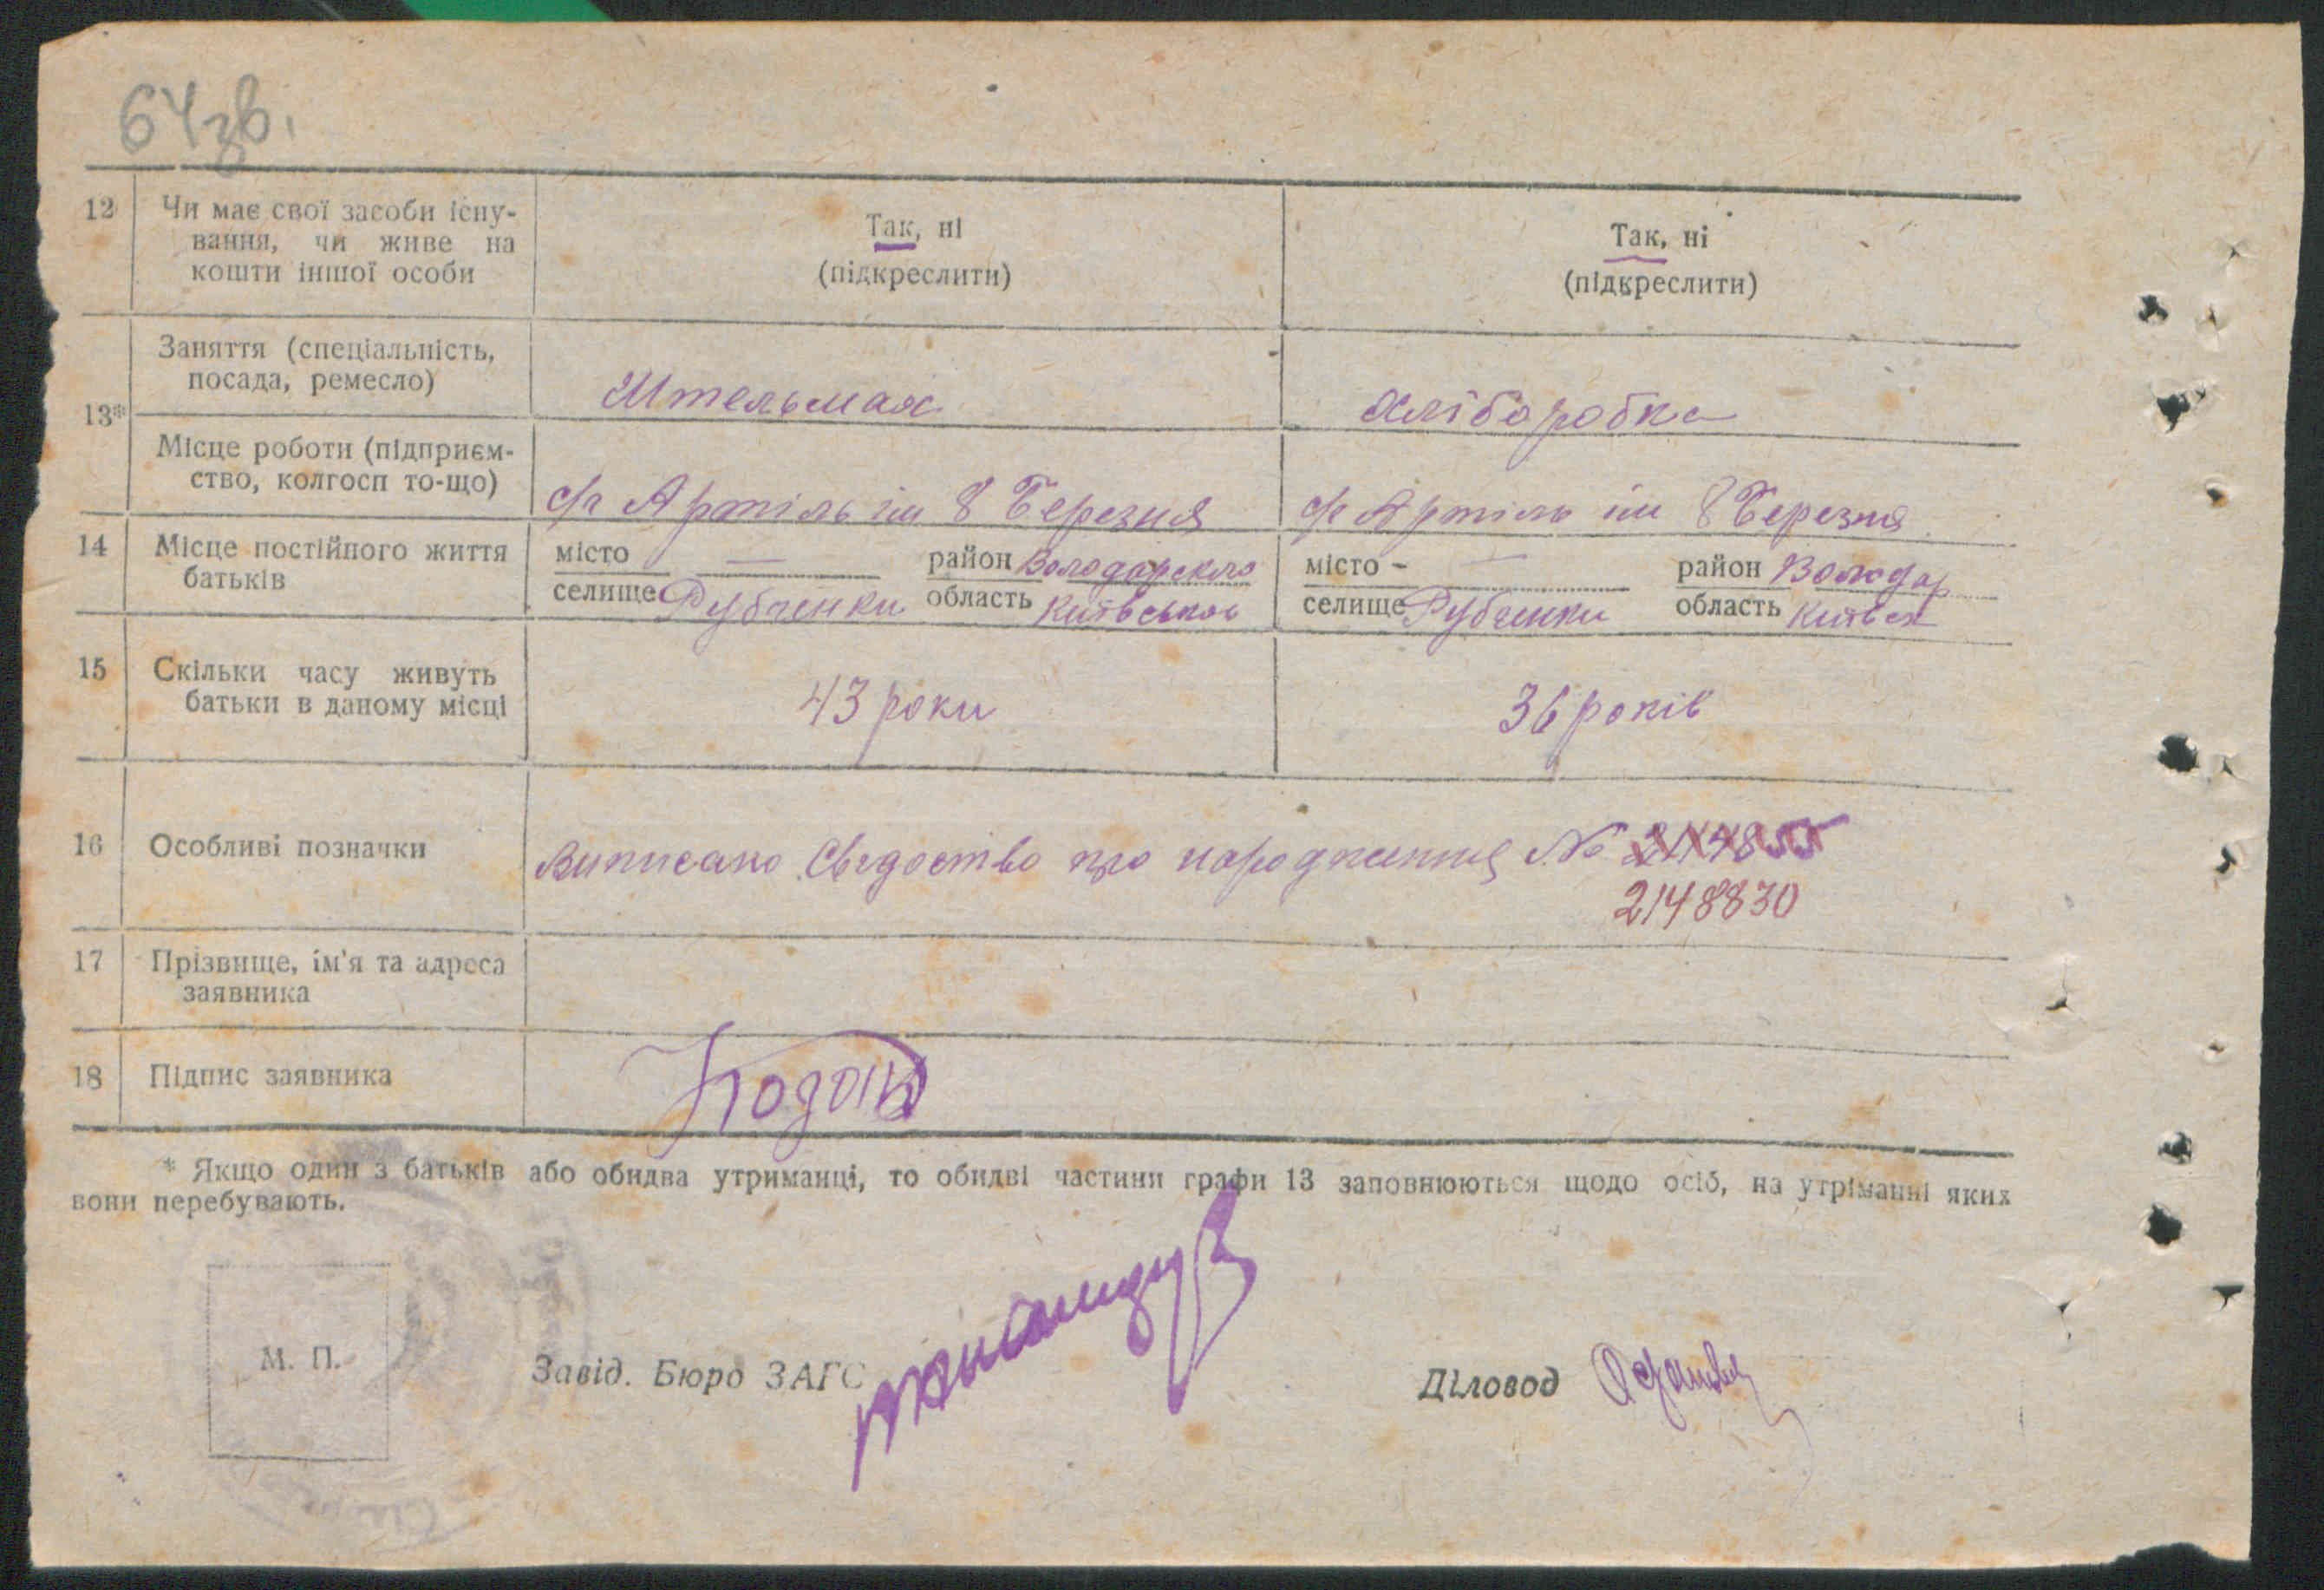 64зв.
12 Чи має свої засоби існу-
вання, чи живе на
кошти іншої особи
Так, ні
(підкреслити)
Так, ні
(підкреслити)
13*
Заняття (спеціальність,
посада, ремесло)
Штельмах
хліборобка
Місце роботи (підприєм-
ство, колгосп то-що)
с/г Артіль ім 8 Березня
с/г Артіль ім 8 Березня
14 Місце постійного життя
батьків
місто — район Володарского
селище Рубченки область Київської
місто - — район Володар
селище Рубченки область Київськ
15 Скільки часу живуть
батьки в даному місці
43 роки
36 років
16 Особливі позначки
Виписано Свідоство про народження №
2148830
17 Прізвище, ім'я та адреса
заявника
18 Підпис заявника
* Якщо один з батьків або обидва утриманці, то обидві частини графи 13 заповнюються щодо осіб, на утріманні яких
вони перебувають.
М. П.
Завід. Бюро ЗАГС
Діловод